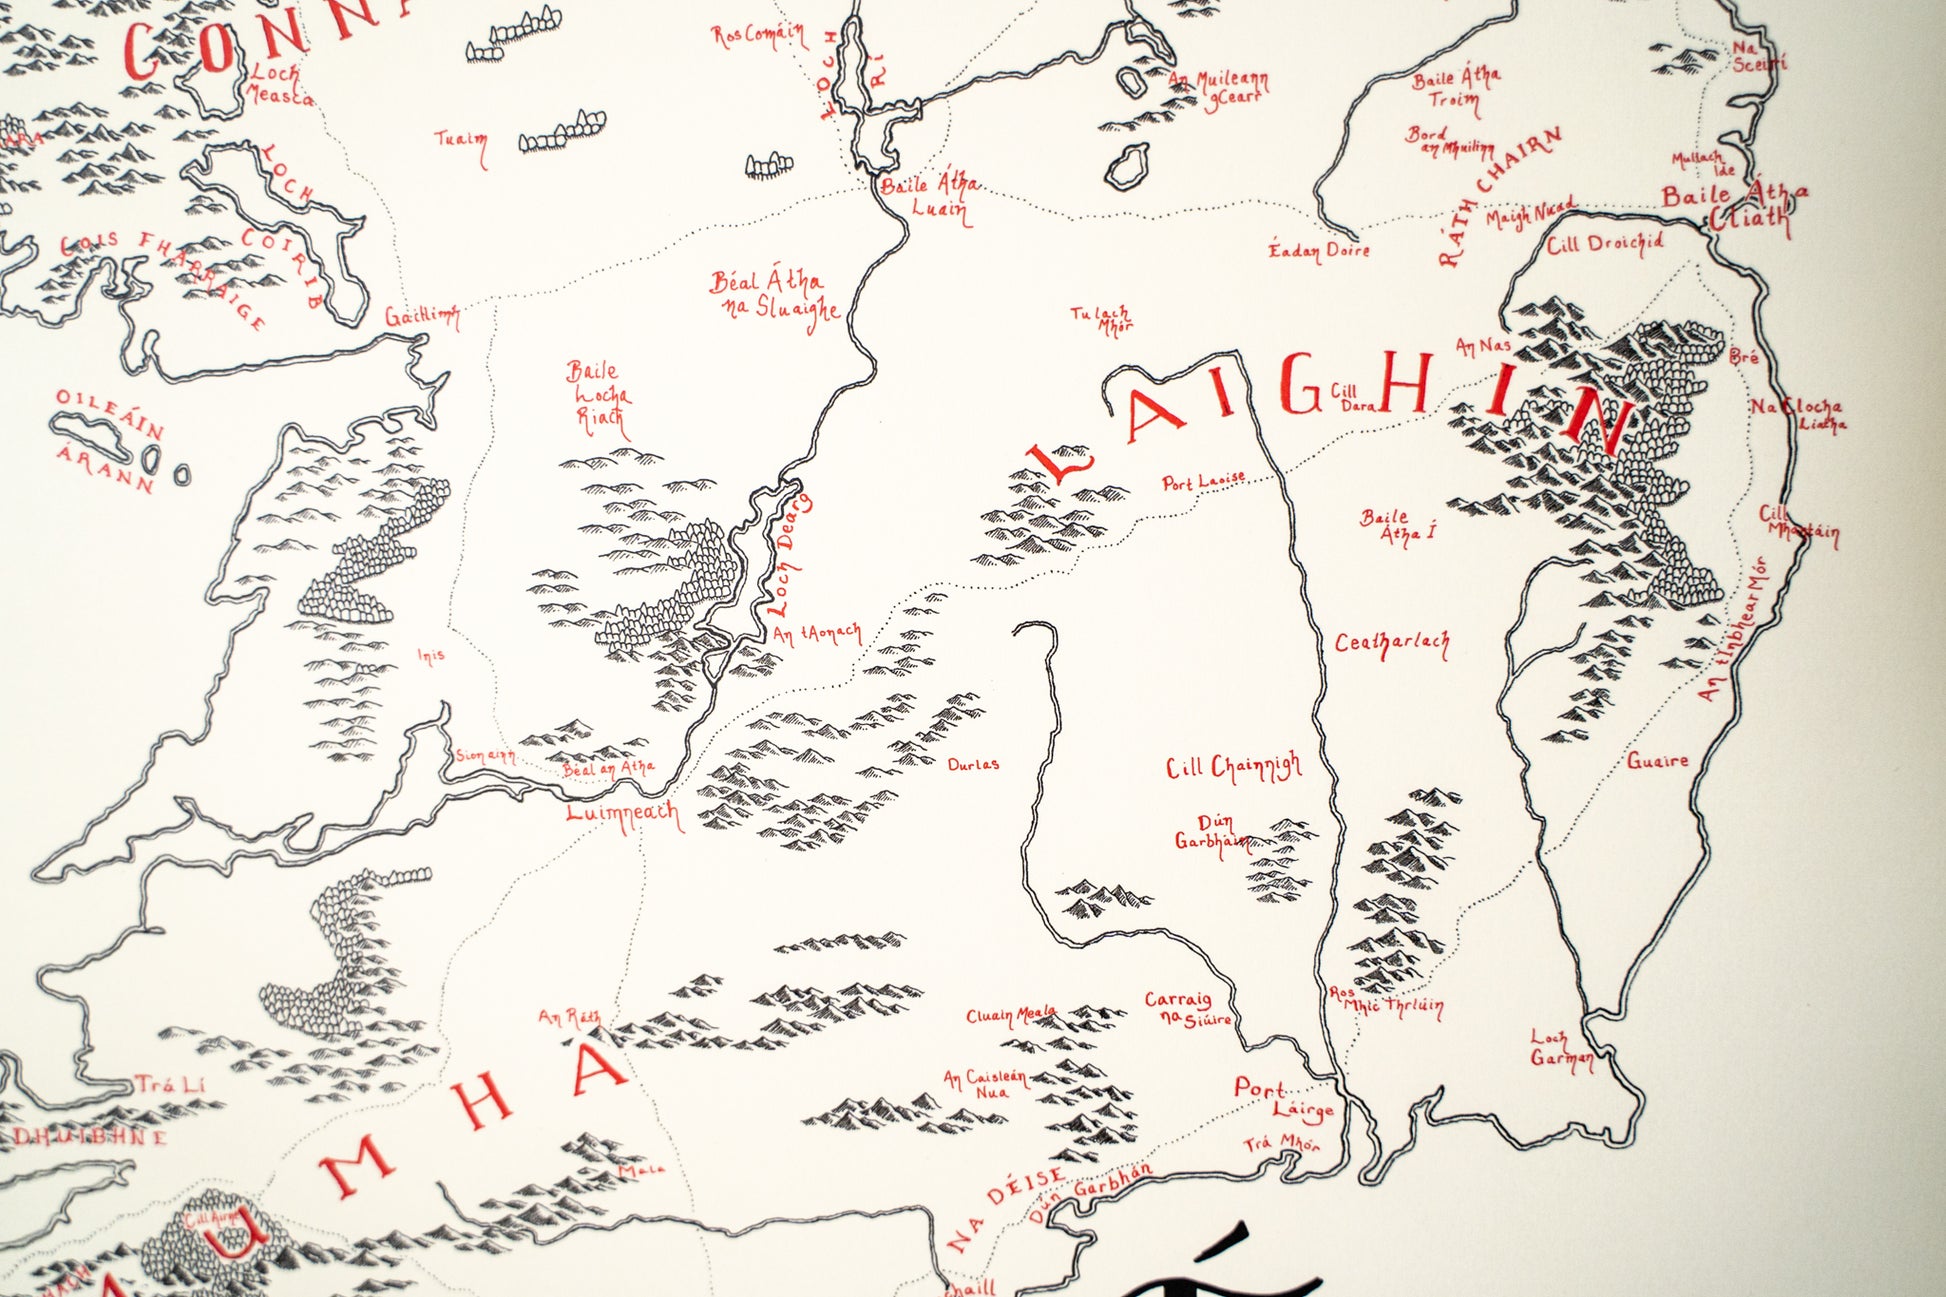 CONNA
Loch
Measca
Ros Comáin
LOCH
RÍ
An Muileann
gCearr
Baile Átha
Troim
Bord
an Mhuilinn
Na
Sceirí
Tuaim
ARA
LOCH
COIRIB
COIS FHARRAIGE
Baile Átha
Luain
RÁTH CHAIRN
Mullach
Ide
Baile Átha
Cliath
Maigh Nuad
Cill Droichid
Éadan Doire
Gaillimh
Béal Átha
na Sluaighe
Tulach
Mhór
An Nas
Bré
OILEÁIN
ÁRANN
Baile
Locha
Riach
LAIGHIN
Cill
Dara
Na Clocha
Liatha
Port Laoise
Baile
Átha Í
Cill
Mhantáin
Loch Dearg
An tAonach
An tInbhear Mór
Inis
Ceatharlach
Sionainn
Béal an Átha
Luimneach
Durlas
Cill Chainnigh
Guaire
Dún
Garbháin
An Ráth
Cluain Meala
Carraig
na Siúire
Ros
Mhic Thriúin
Loch
Garman
Trá Lí
DHUIBHNE
An Caisleán
Nua
Port
Láirge
Trá Mhór
UMHA
Mala
NA DÉISE
Dún Garbhán
Cill Airne
chaill